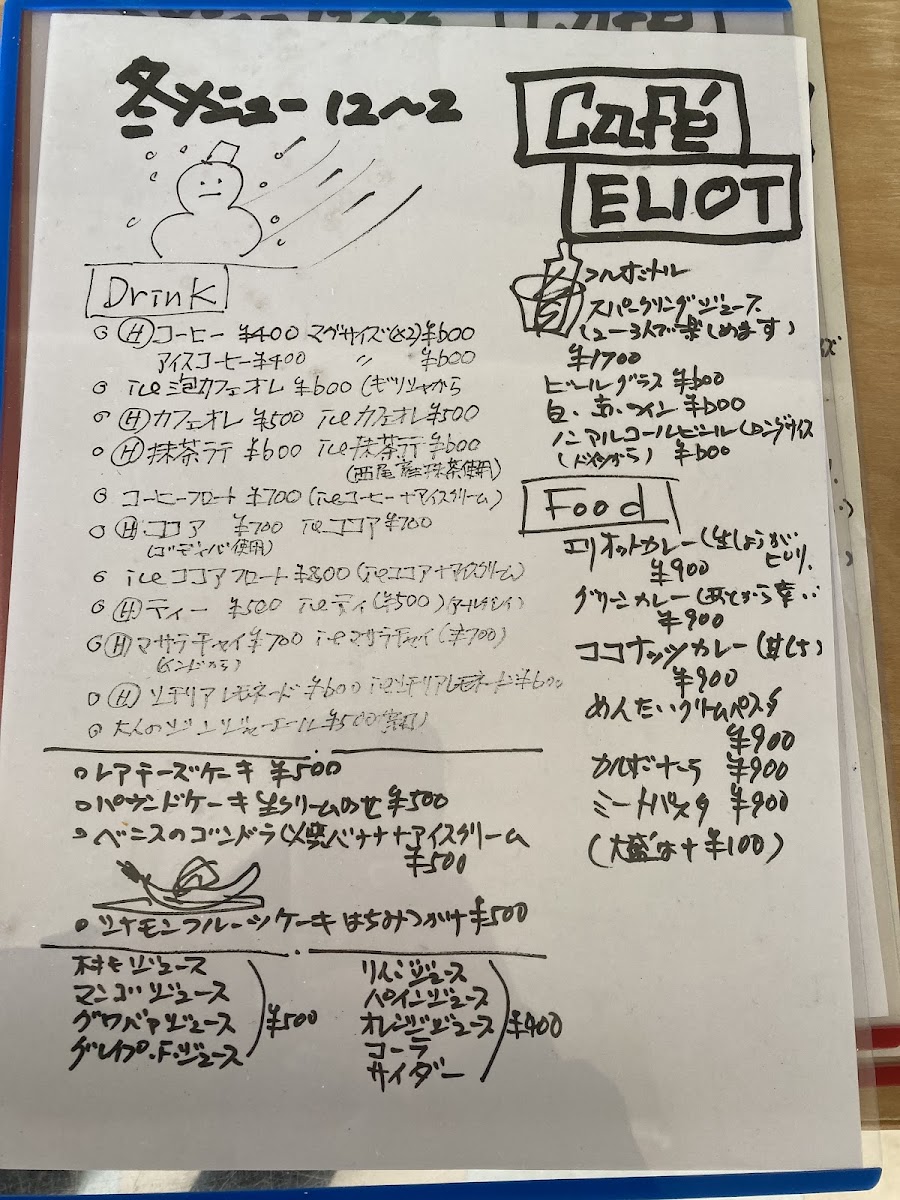 冬メニュー 12〜2
Café
ELIOT
Drink
Ⓗコーヒー ¥400 マグサイズ(×2)¥600
アイスコーヒー ¥400 〃 ¥600
ice泡カフェオレ ¥600 (ギリシャから
Ⓗカフェオレ ¥500 iceカフェオレ ¥500
Ⓗ抹茶ラテ ¥600 ice抹茶ラテ ¥600
(西尾産抹茶使用)
コーヒーフロート ¥700 (iceコーヒー+アイスクリーム)
Ⓗココア ¥700 iceココア ¥700
(ゴディバ使用)
iceココアフロート ¥800 (iceココア+アイスクリーム)
Ⓗティー ¥500 iceティ(¥500)(アールグレイ)
Ⓗマサラチャイ ¥700 iceマサラチャイ(¥700)
(インドから)
Ⓗシチリアレモネード ¥600 iceシチリアレモネード ¥600
大人のジンジャーエール ¥500
レアチーズケーキ ¥500
パウンドケーキ生クリームのせ ¥500
ベニスのゴンドラ(焼バナナ+アイスクリーム
¥500
シナモンフルーツケーキ はちみつがけ ¥500
マンゴジュース
グワバァジュース
グレイプ.F.ジュース
¥500
りんごジュース
パインジュース
オレンジジュース
コーラ
サイダー
¥400
フルボトル
スパークリングジュース
(2〜3人で楽しめます)
¥1700
ビールグラス ¥600
白、赤、ワイン ¥600
ノンアルコールビール(ロングサイズ
(ドイツから) ¥600
Food
エリオットカレー(生しょうがピリリ
¥900
グリーンカレー(あとから辛い
¥900
ココナッツカレー(甘口)
¥900
めんたいクリームパスタ
¥900
カルボナーラ ¥900
ミートパスタ ¥900
(大盛は+¥100)